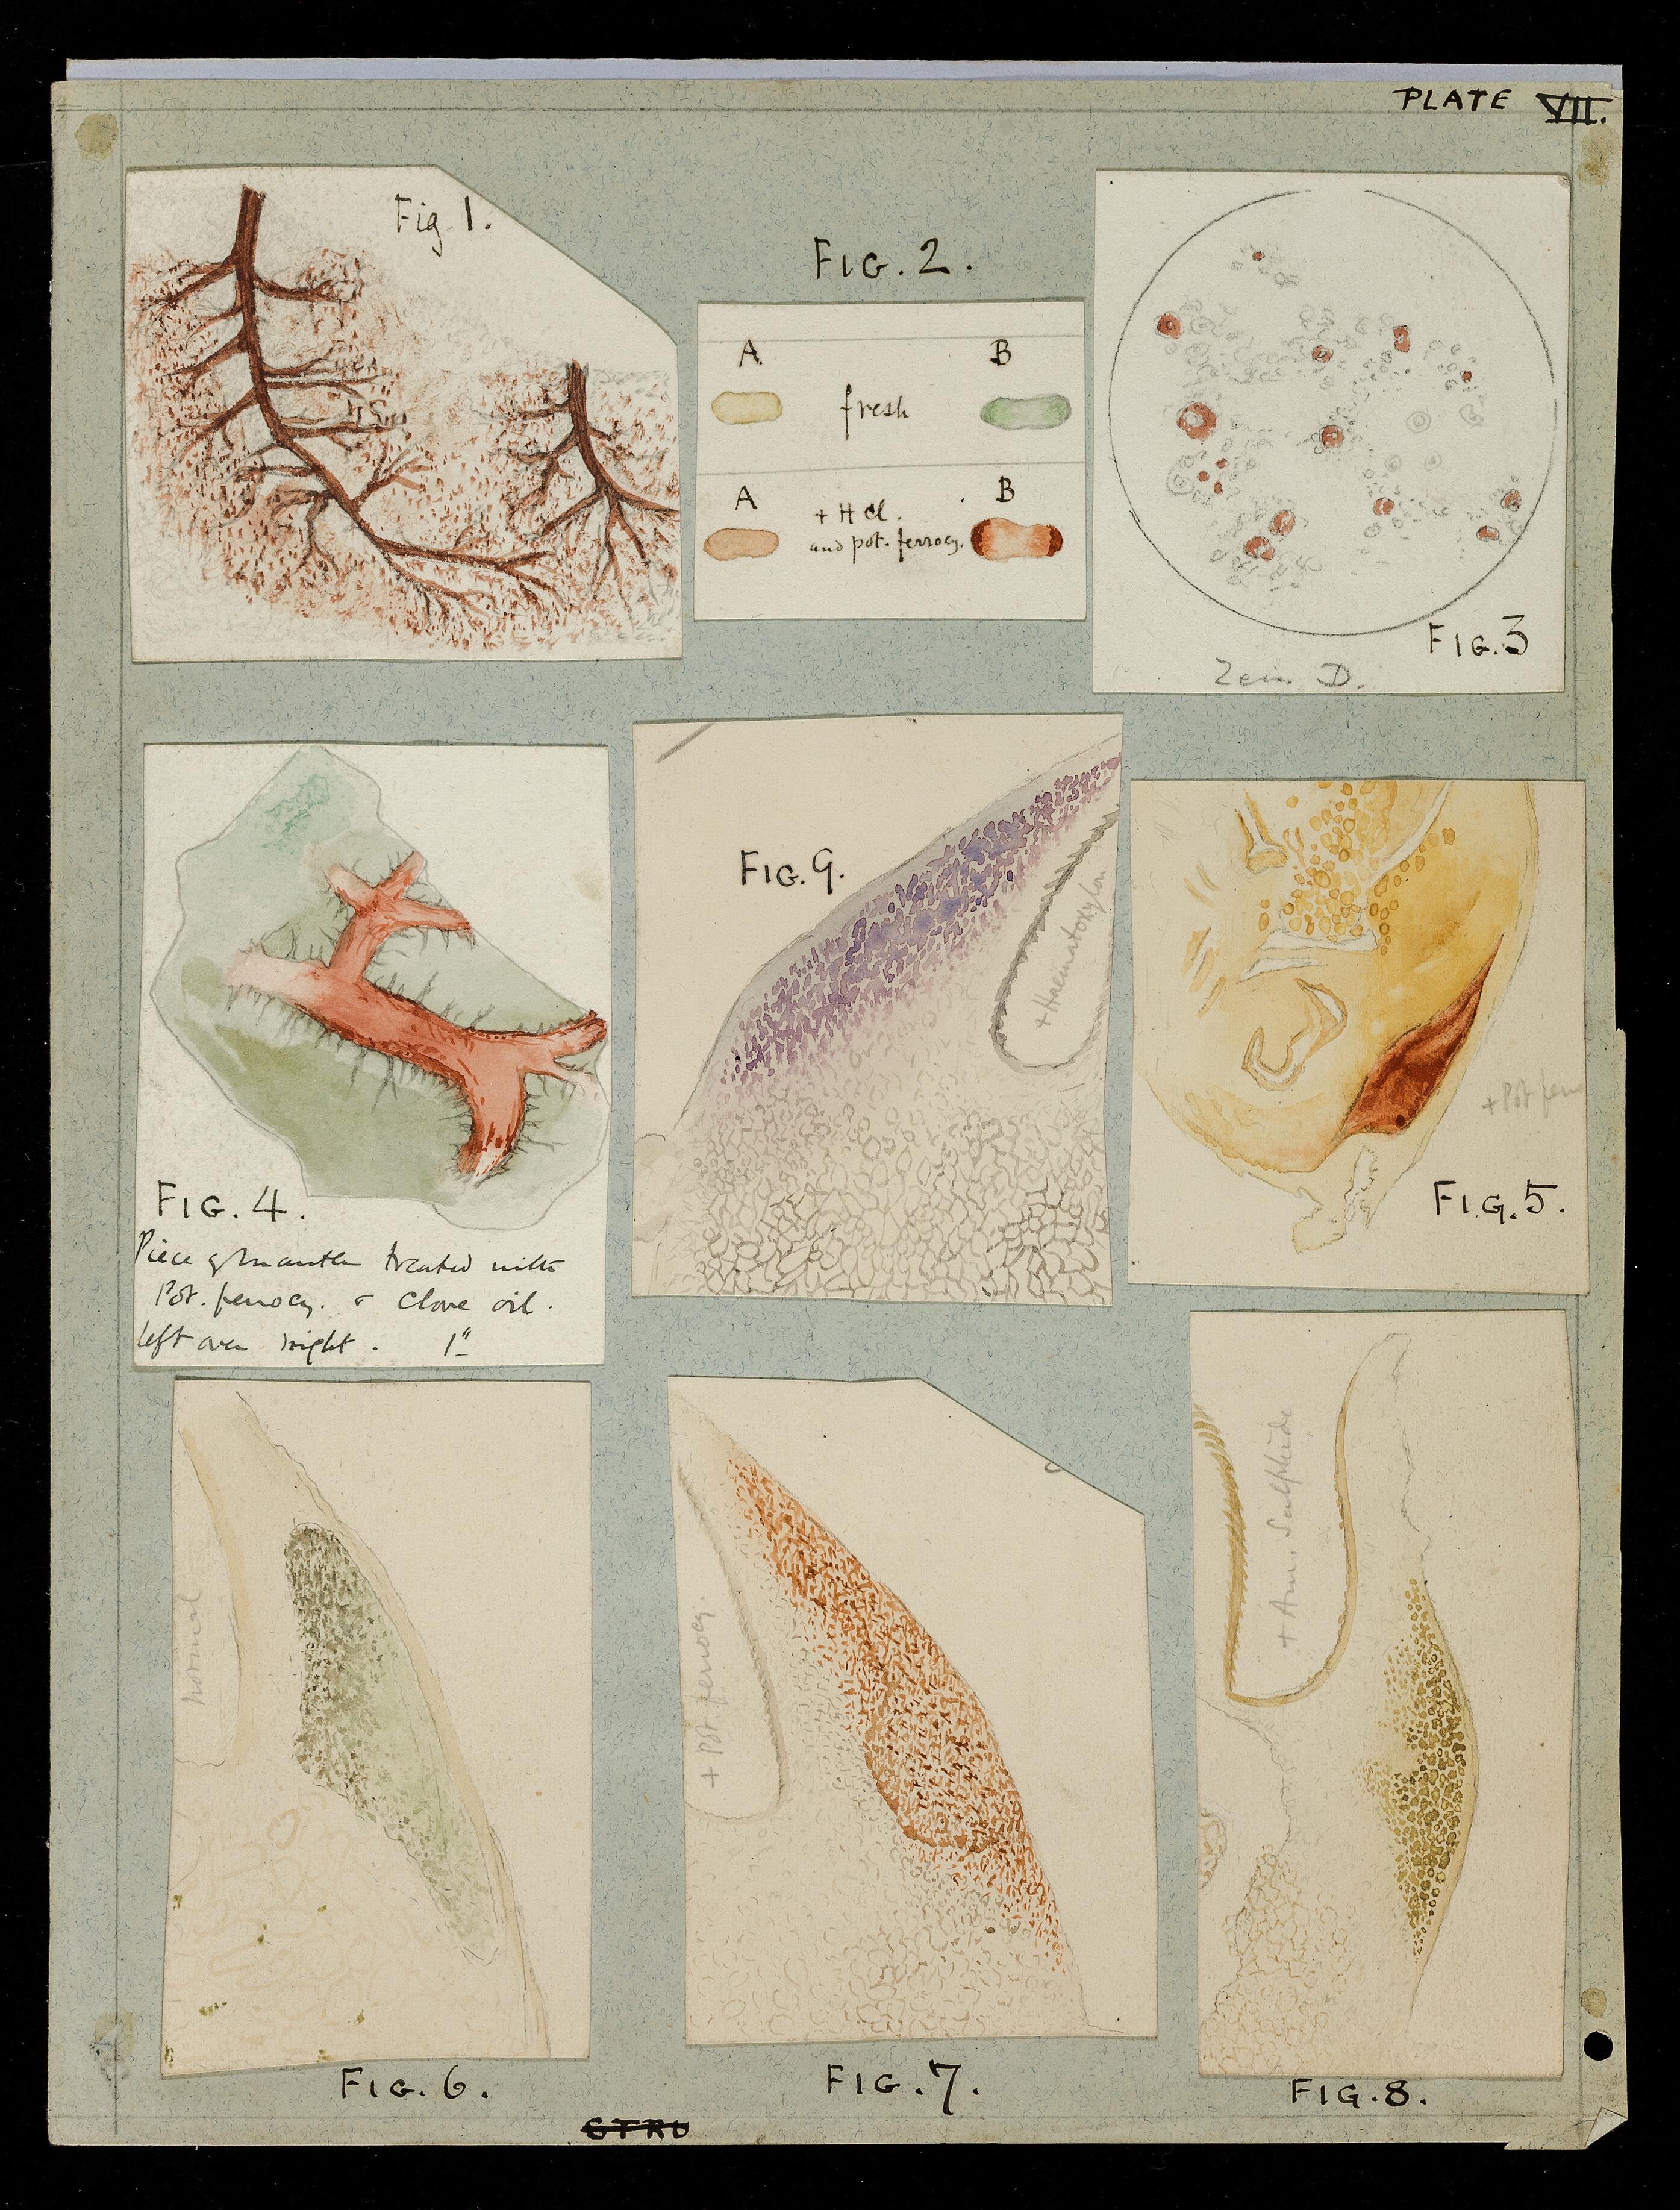 PLATE VII.
Fig 1.
FIG. 2.
A B
fresh
A B
+ HCl.
and pot. ferrocy.
FIG. 3
Zeiss D.
FIG. 4.
Piece of mantle treated with
Pot. ferrocy. & Clove oil.
left over night. 1"
FIG. 9.
+ Haematoxylon
+ Pot ferro
FIG. 5.
normal
FIG. 6.
+ Pot ferrocy.
FIG. 7.
+ Am. Sulphide
FIG. 8.